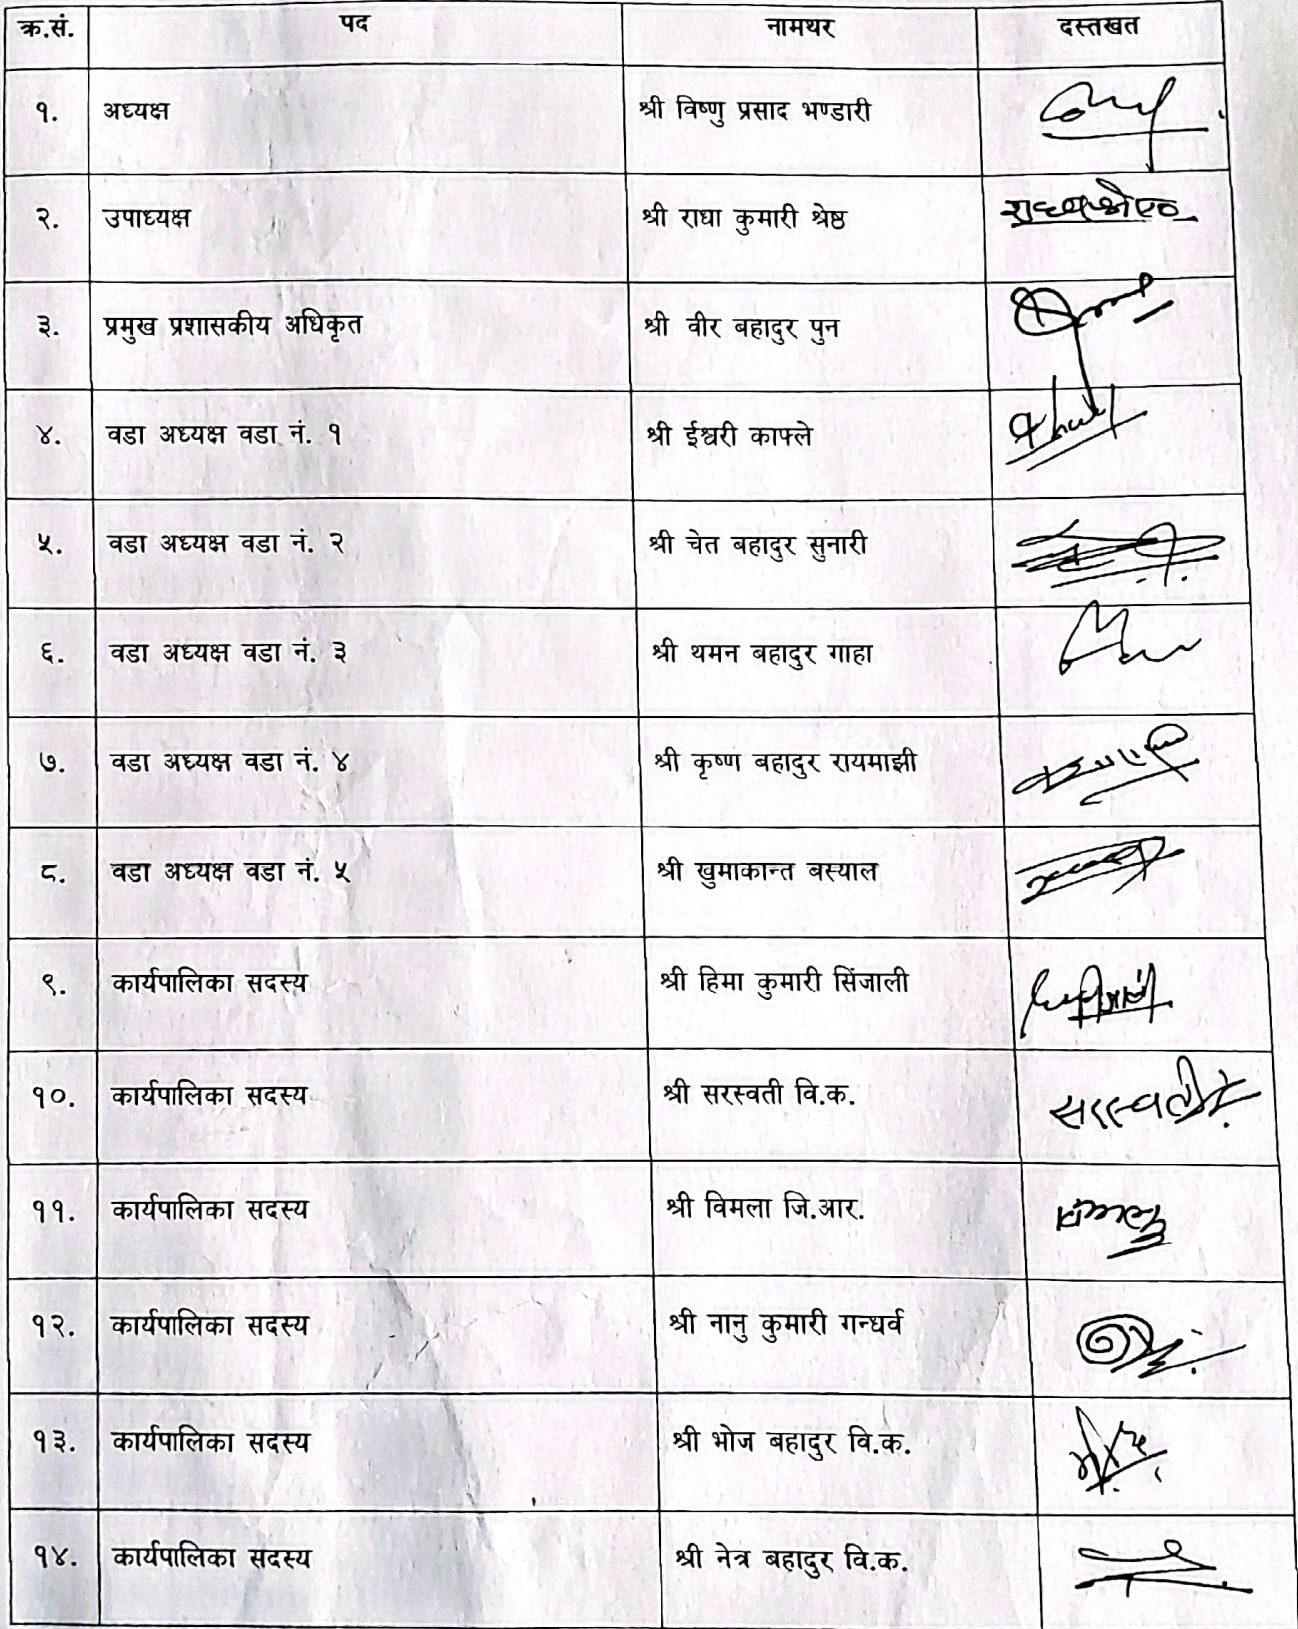 क्र.सं. पद नामथर दस्तखत
१. अध्यक्ष श्री विष्णु प्रसाद भण्डारी
२. उपाध्यक्ष श्री राधा कुमारी श्रेष्ठ राधा श्रेष्ठ
३. प्रमुख प्रशासकीय अधिकृत श्री वीर बहादुर पुन
४. वडा अध्यक्ष वडा नं. १ श्री ईश्वरी काफ्ले
५. वडा अध्यक्ष वडा नं. २ श्री चेत बहादुर सुनारी
६. वडा अध्यक्ष वडा नं. ३ श्री थमन बहादुर गाहा
७. वडा अध्यक्ष वडा नं. ४ श्री कृष्ण बहादुर रायमाझी
८. वडा अध्यक्ष वडा नं. ५ श्री खुमाकान्त बस्याल
९. कार्यपालिका सदस्य श्री हिमा कुमारी सिंजाली
१०. कार्यपालिका सदस्य श्री सरस्वती वि.क. सरस्वती
११. कार्यपालिका सदस्य श्री विमला जि.आर.
१२. कार्यपालिका सदस्य श्री नानु कुमारी गन्धर्व
१३. कार्यपालिका सदस्य श्री भोज बहादुर वि.क.
१४. कार्यपालिका सदस्य श्री नेत्र बहादुर वि.क.